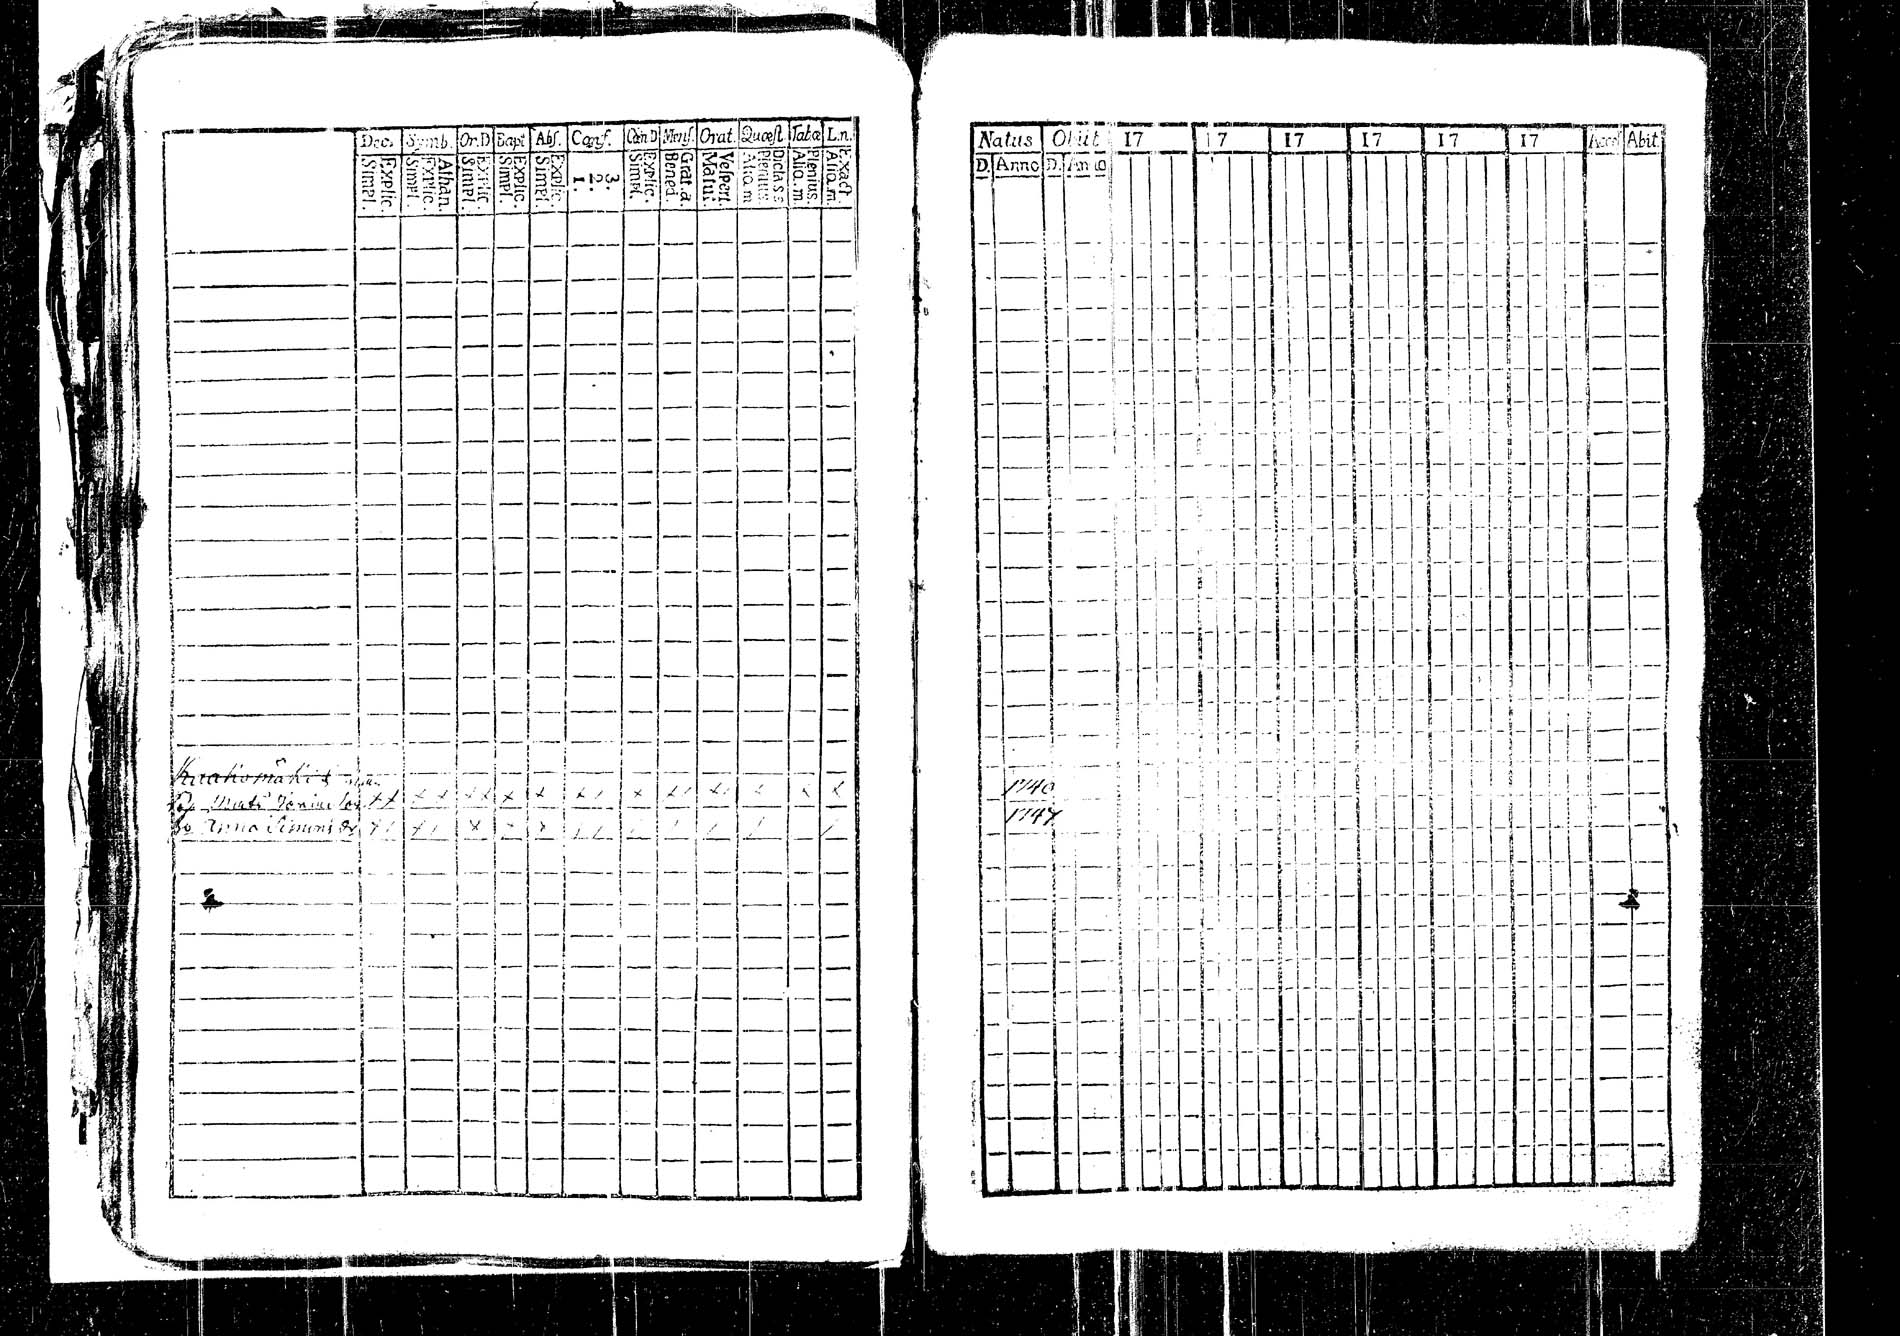 Dec. Symb. Or.D Bapt Abs. Conf. Cœn D Mens. Orat. Quæst Tabæ L.n.
Explic. Simpl. Athan. Explic. Simpl. Explic. Simpl. Explic. Simpl. Explic. Simpl. 3. 2. 1. Explic. Simpl. Grat. a. Bened. Vespert Matut. Dicta s s Plenius Aliq. m Plenius. Aliq. m Exact. Aliq. m.
Matts
Anna Simons dr
Natus Obiit 17 17 17 17 17 17 Access Abit.
D. Anno D. Anno
1740
1747